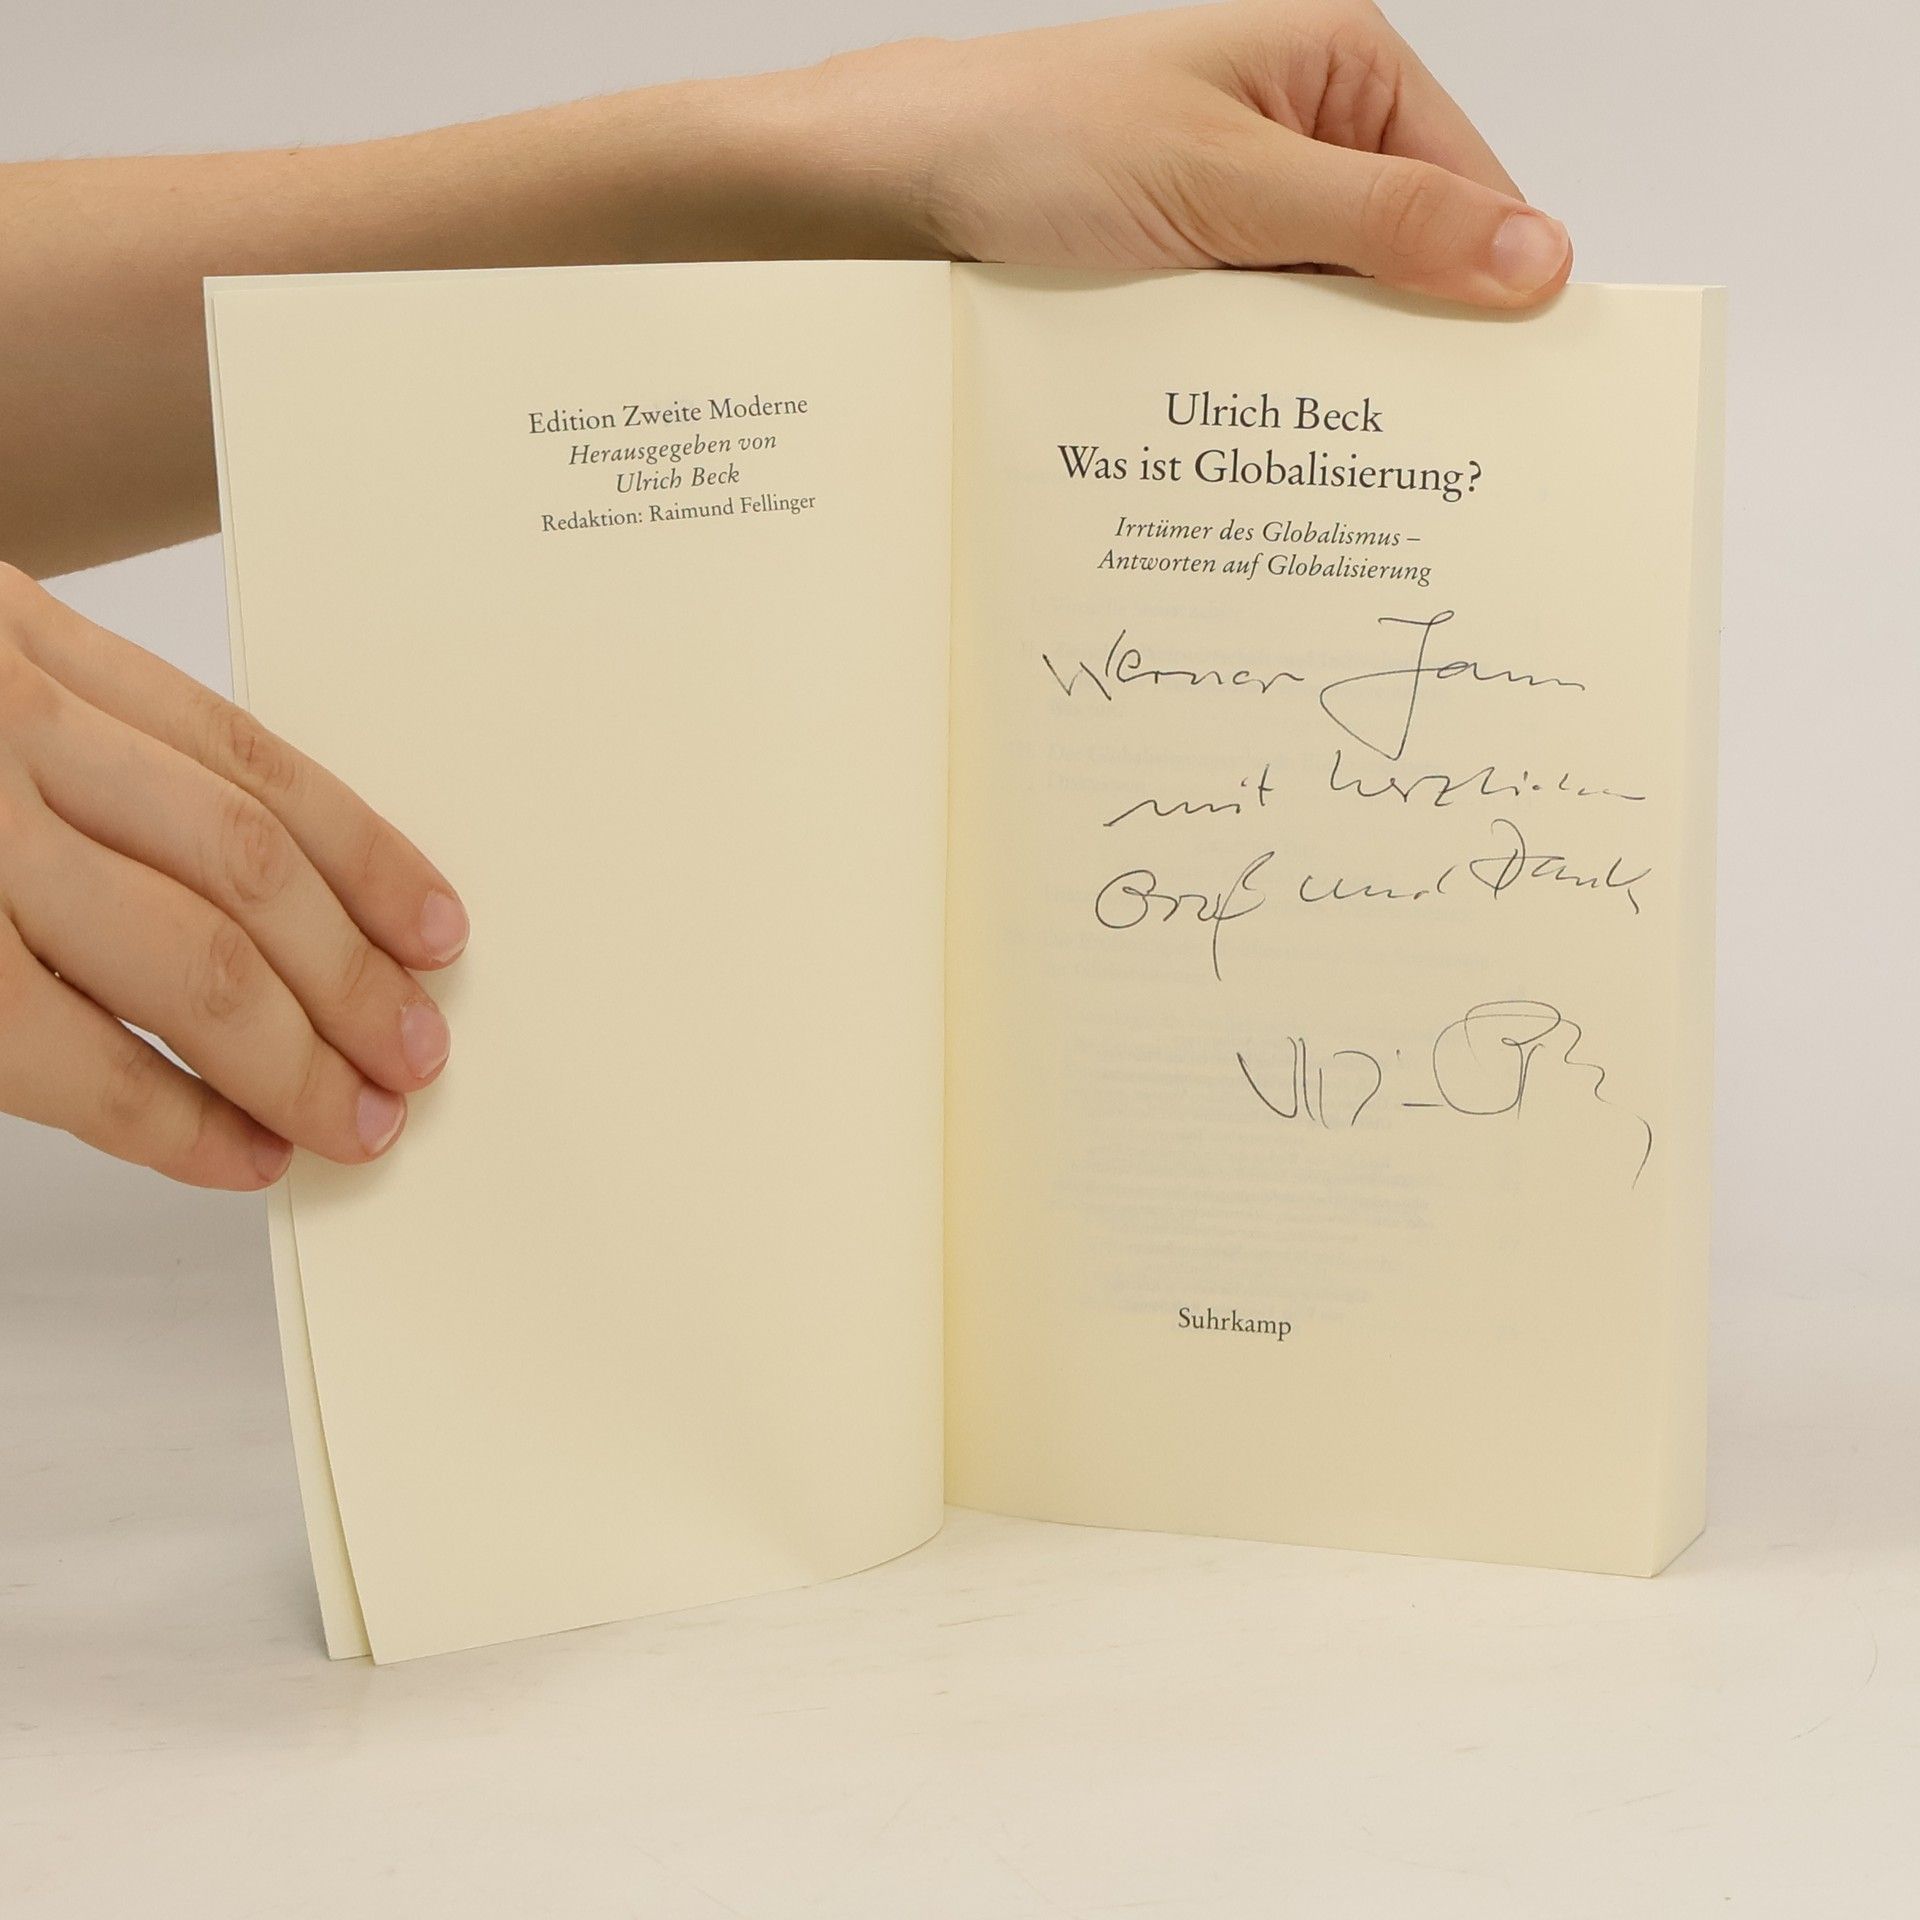 Edition Zweite Moderne
Herausgegeben von
Ulrich Beck
Redaktion: Raimund Fellinger
Ulrich Beck
Was ist Globalisierung?
Irrtümer des Globalismus –
Antworten auf Globalisierung
Werner Jann
mit herzlichem
Gruß und Dank
Suhrkamp